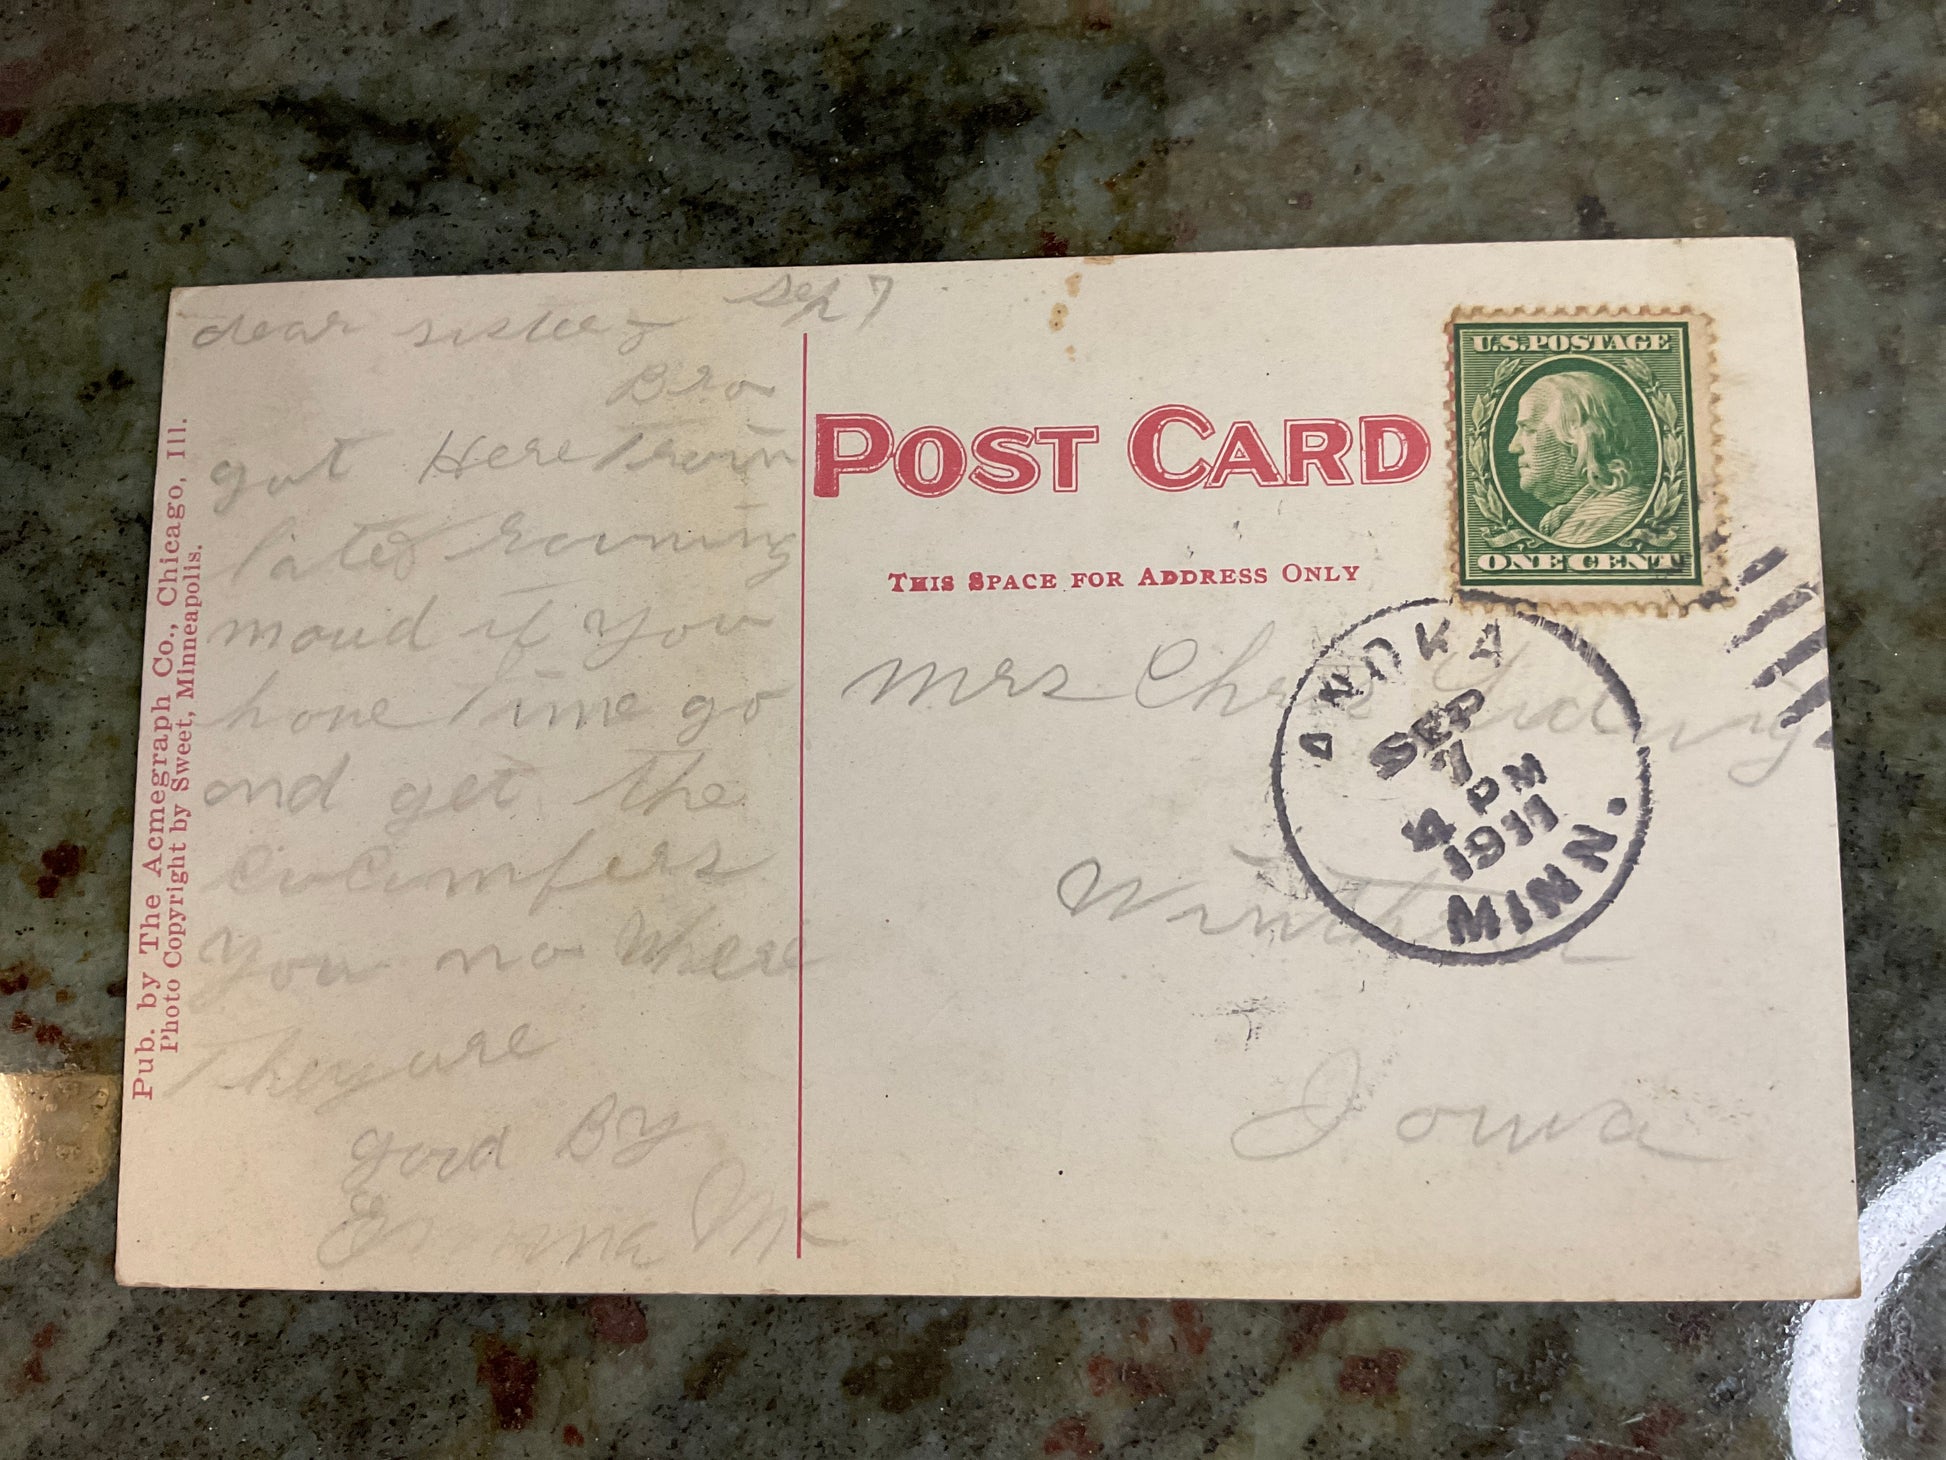 Sep 7
dear sister
Bro
got Here Train
lated
maud if you
have Time go
and get The
cucumfers
you no Where
They are
good By
Emma Mc
Pub. by The Acmegraph Co., Chicago, Ill.
Photo Copyright by Sweet, Minneapolis.
POST CARD
THIS SPACE FOR ADDRESS ONLY
U.S. POSTAGE
ONE CENT
ANOKA
SEP
7
4 PM
1911
MINN.
Mrs Chris
Winthrop
Iowa